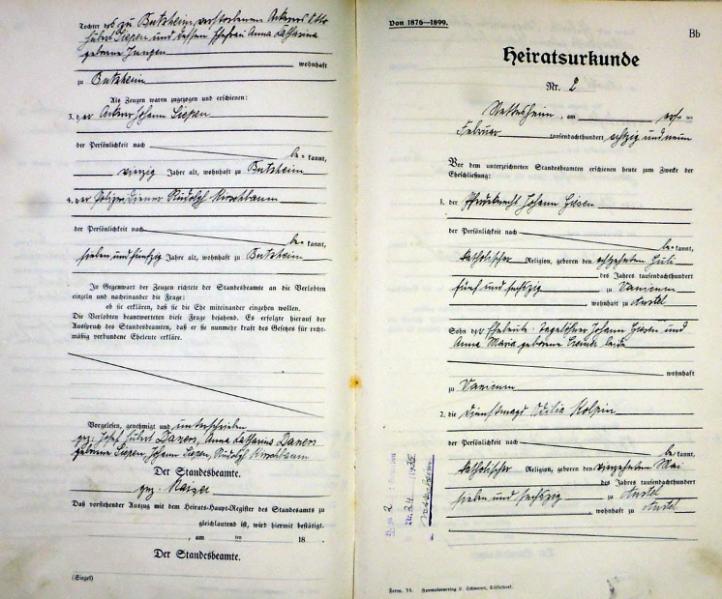 Tochter des zu Butzheim verstorbenen Ackerers Otto
Hubert Siepen und dessen Ehefrau Anna Katharina
geborene Jungen
wohnhaft
zu Butzheim
Als Zeugen waren zugezogen und erschienen:
3. der Ackerer Johann Siepen
der Persönlichkeit nach
be= kannt,
vierzig Jahre alt, wohnhaft zu Butzheim
4. der Polizeidiener Rudolph Kirschbaum
der Persönlichkeit nach
be= kannt,
sieben und fünfzig Jahre alt, wohnhaft zu Butzheim
In Gegenwart der Zeugen richtete der Standesbeamte an die Verlobten
einzeln und nacheinander die Frage:
ob sie erklären, daß sie die Ehe miteinander eingehen wollen.
Die Verlobten beantworteten diese Frage bejahend. Es erfolgte hierauf der
Ausspruch des Standesbeamten, daß er sie nunmehr kraft des Gesetzes für recht-
mäßig verbundene Eheleute erkläre.
Vorgelesen, genehmigt und unterschrieben
gez: Josef Hubert Daners, Anna Katharina Daners
geborene Siepen, Johann Siepen, Rudolph Kirschbaum
Der Standesbeamte.
gez.
Daß vorstehender Auszug mit dem Heirats-Haupt-Register des Standesamts zu
gleichlautend ist, wird hiermit bestätigt.
, am ten 18
Der Standesbeamte.
(Siegel)
Von 1876—1899.
Bb
Heiratsurkunde
Nr. 2
Nettesheim, am
Februar tausendachthundert achtzig und neun
Vor dem unterzeichneten Standesbeamten erschienen heute zum Zwecke der
Eheschließung:
1. der Pferdeknecht Johann Giesen
der Persönlichkeit nach
be= kannt,
katholischer Religion, geboren den achtzehnten Juli
des Jahres tausendachthundert
fünf und sechszig zu Vanikum
wohnhaft zu Anstel
Sohn der Eheleute Tagelöhner Johann Giesen und
Anna Maria geborene beide
wohnhaft
zu Vanikum
2. die Dienstmagd Odilia
der Persönlichkeit nach
be= kannt,
katholischer Religion, geboren den vierzehnten Mai
des Jahres tausendachthundert
sieben und sechszig zu Anstel
wohnhaft zu Anstel